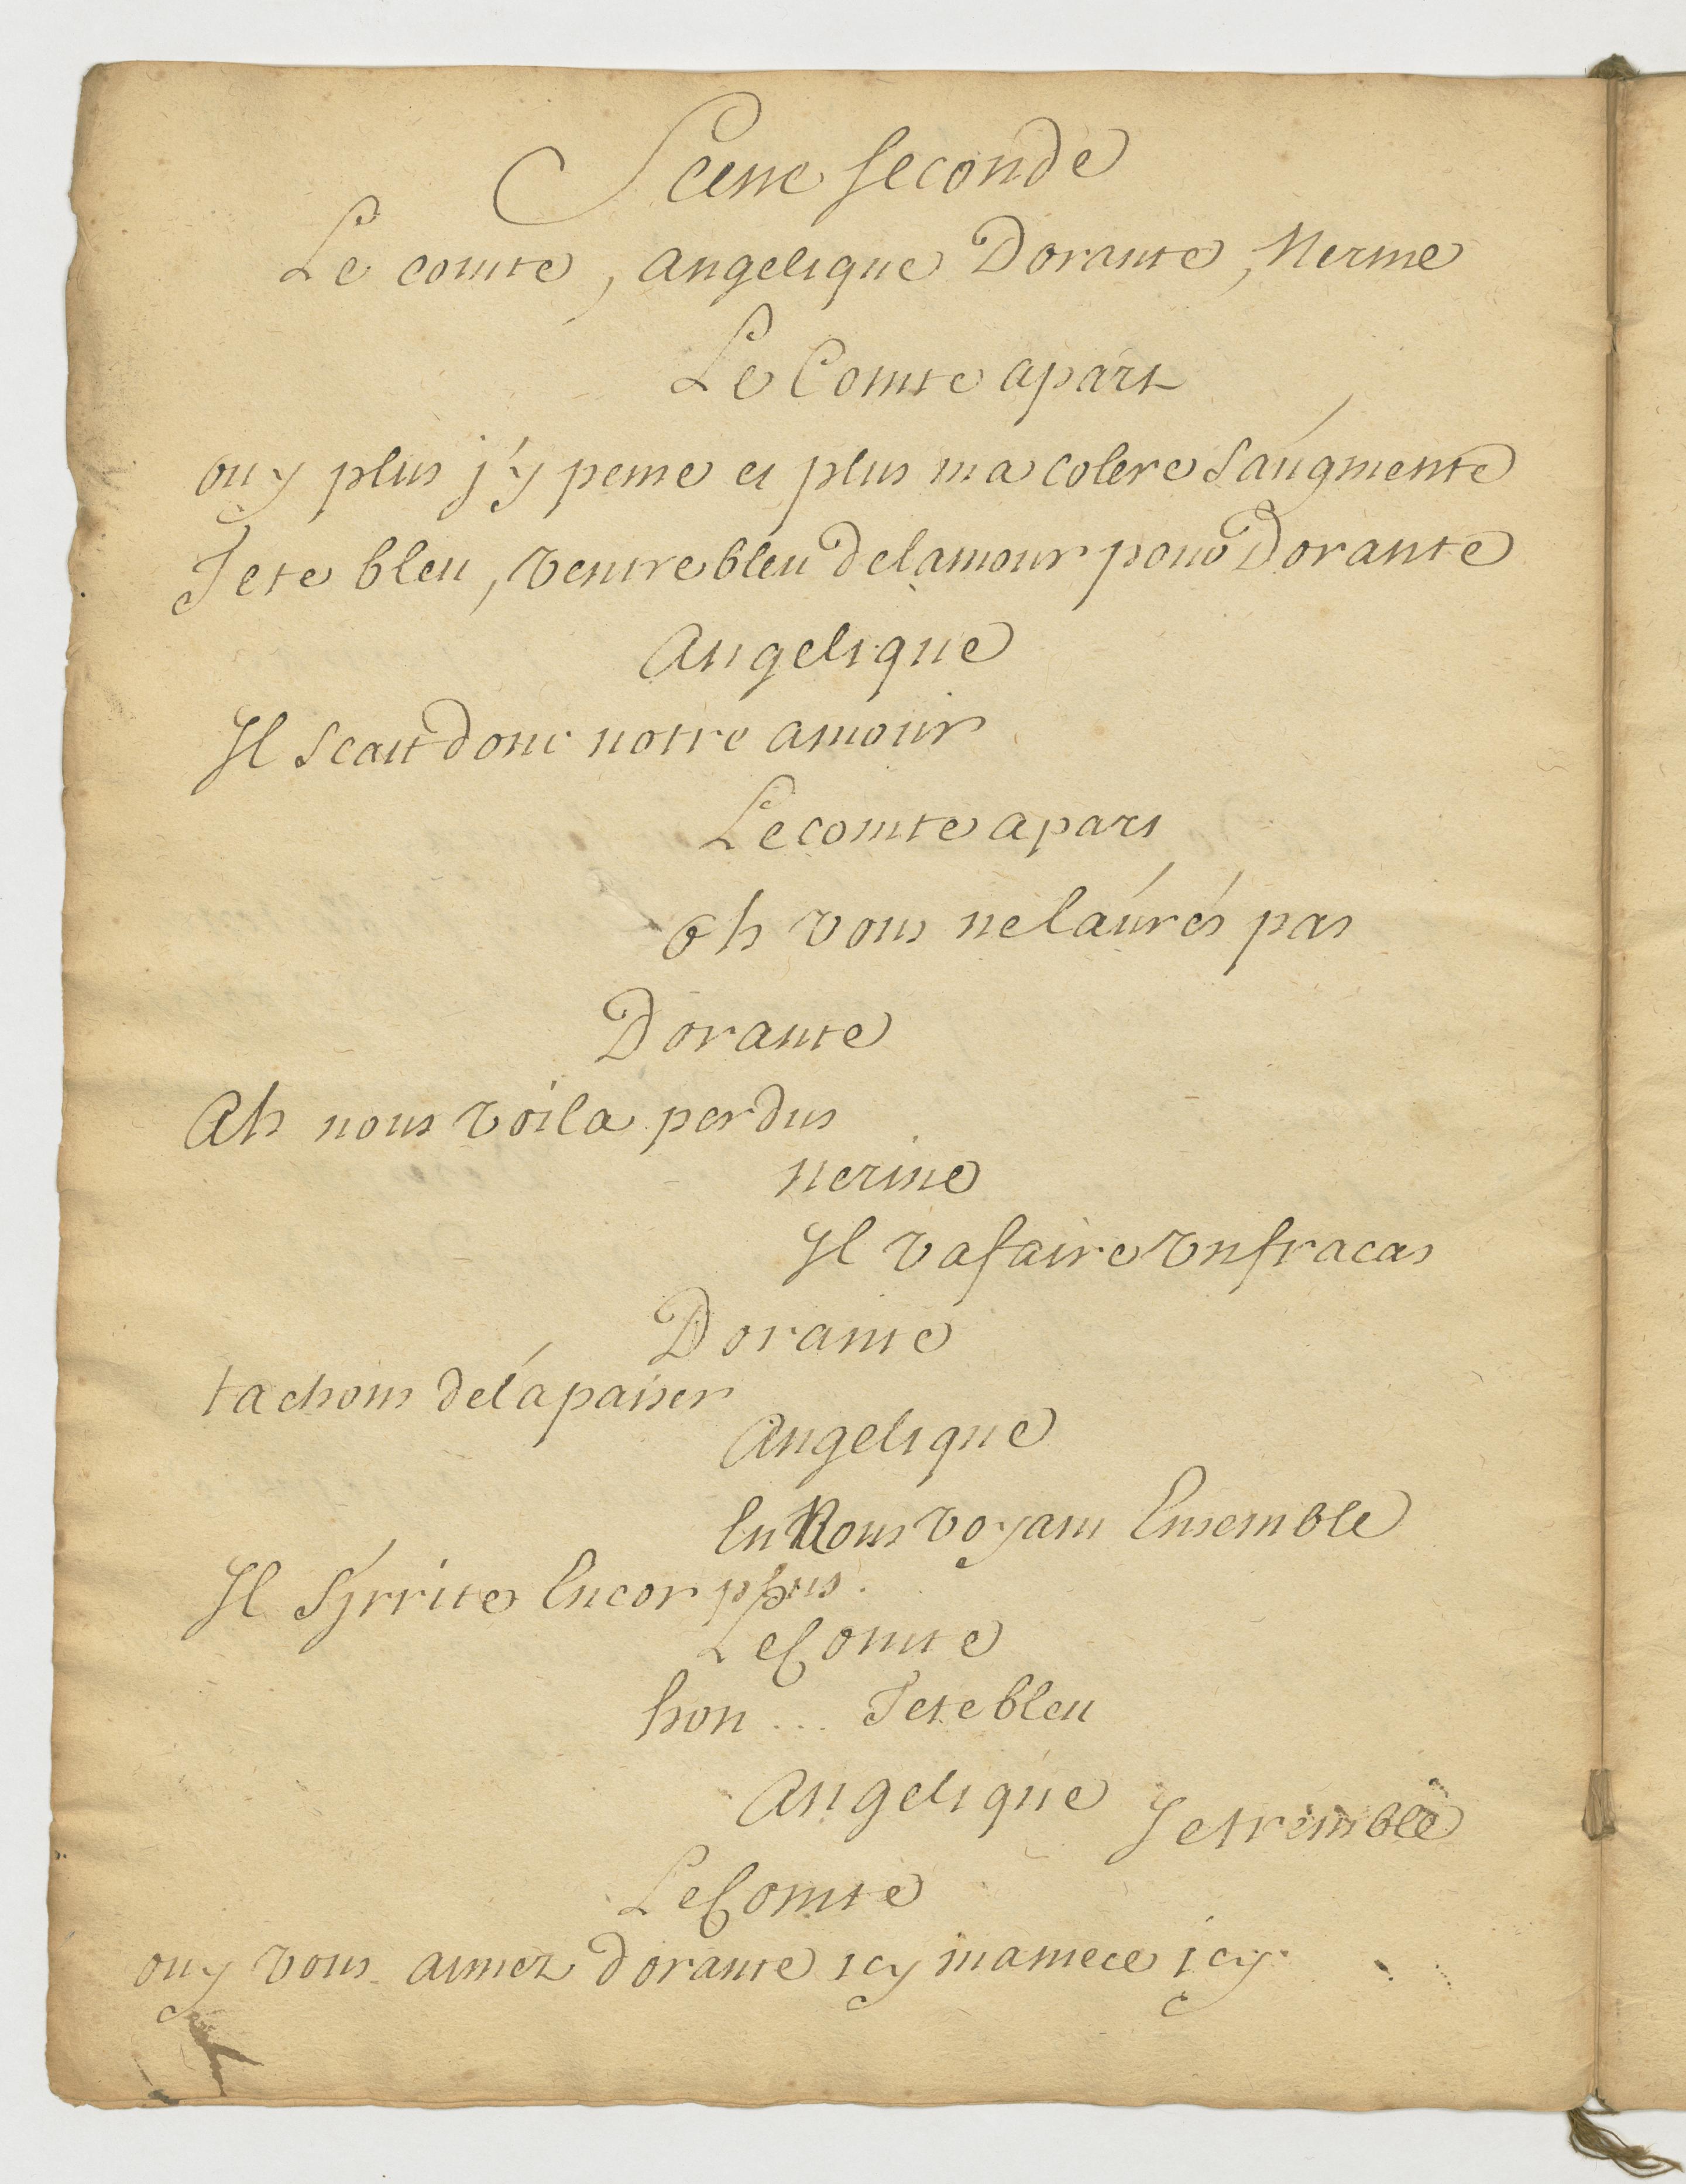 Scene Seconde
Le comte, angelique Dorante, Nerine
Le Comte apart
ouy plus j'y pense et plus ma colere S'augmente
Tete bleu, ventre bleu de lamour pour Dorante
Angelique
Il scait donc notre amour
Le comte apart
oh vous ne l'aurés pas
Dorante
Ah nous voila perdus
Nerine
Il va faire un fracas
Dorante
tachons de l'apaiser
Angelique
En Nous voyant Ensemble
Il S'irrite Encor plus.
Le Comte
hon ... Tete bleu
Angelique
Je tremble
Le Comte
ouy vous aimez dorante icy ma niece icy